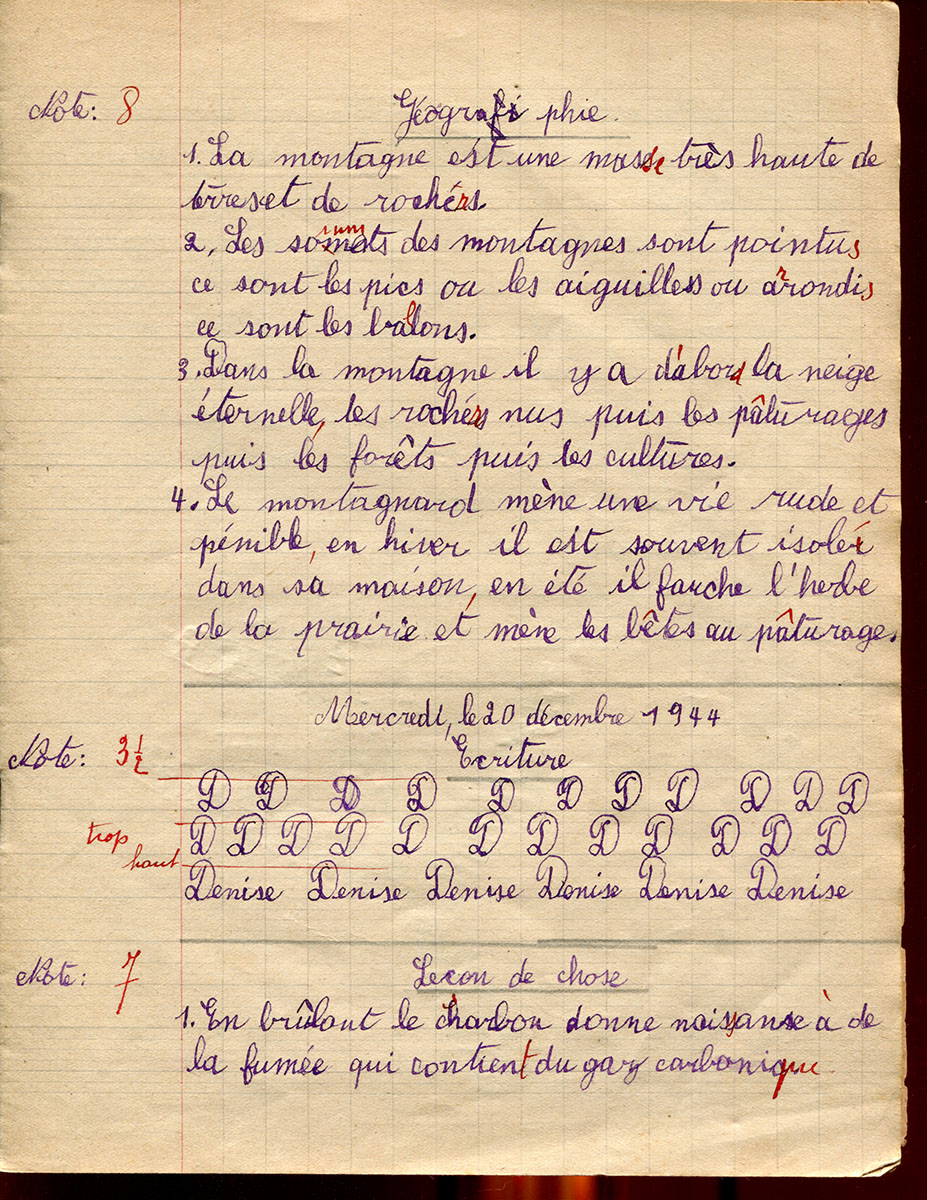 Note: 8
Géografi phie.
1. La montagne est une masse très haute de
terres et de rochers.
2. Les sommets des montagnes sont pointus
ce sont les pics ou les aiguilles ou arrondis
ce sont les ballons.
3. Dans la montagne il y a d'abord la neige
éternelle, les rochers nus puis les pâturages
puis les forêts puis les cultures.
4. Le montagnard mène une vie rude et
pénible, en hiver il est souvent isolé
dans sa maison, en été il fauche l'herbe
de la prairie et mène les bêtes au pâturage.
Mercredi, le 20 décembre 1944
Note: 3 1/2
Ecriture
D D D D D D D D D D D
trop
D D D D D D D D D D D D
haut
Denise Denise Denise Denise Denise Denise
Note: 7
Lecon de chose
1. En brûlant le charbon donne naissanse à de
la fumée qui contient du gaz carbonique